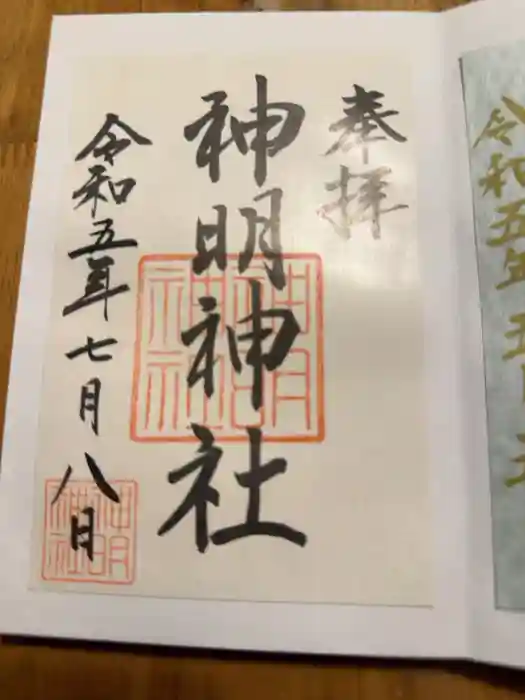 奉拝
神明神社
令和五年七月八日
神明
神社
神明
神社
令和五年五月